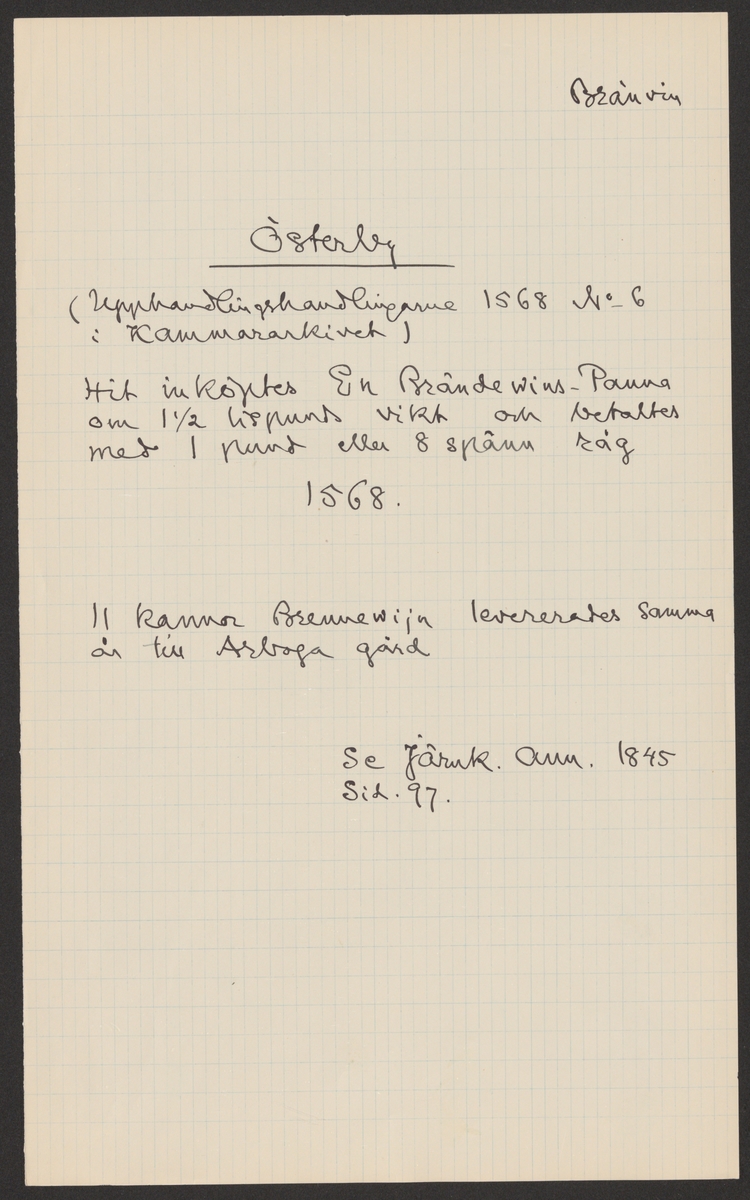 Bränvin
Österby
(Upphandlingshandlingarne 1568 No 6
i Kammararkivet)
Hit inköptes En Brändewins-Panna
om 1 1/2 lispunds vikt och betaltes
med 1 pund eller 8 spänn råg
1568.
11 kannor Brennewijn levererades samma
år till Arboga gård
Se Järnk. Ann. 1845
Sid. 97.